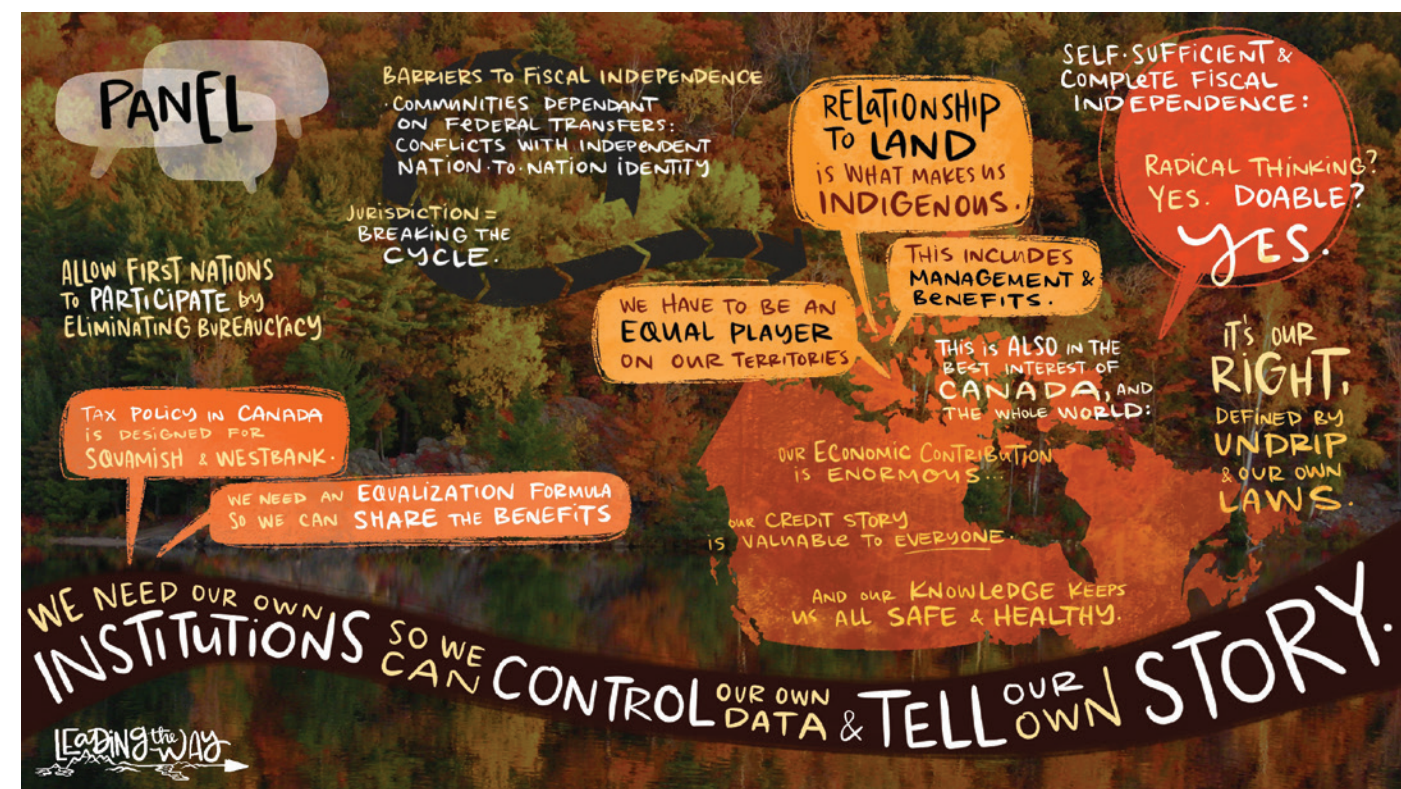 PANEL
BARRIERS TO FISCAL INDEPENDENCE
· COMMUNITIES DEPENDANT
ON FEDERAL TRANSFERS:
CONFLICTS WITH INDEPENDENT
NATION·TO·NATION IDENTITY
JURISDICTION =
BREAKING THE
CYCLE.
ALLOW FIRST NATIONS
TO PARTICIPATE by
ELIMINATING BUREAUCRACY
TAX POLICY IN CANADA
IS DESIGNED FOR
SQUAMISH & WESTBANK.
WE NEED AN EQUALIZATION FORMULA
SO WE CAN SHARE THE BENEFITS
RELATIONSHIP
TO LAND
IS WHAT MAKES US
INDIGENOUS.
THIS INCLUDES
MANAGEMENT &
BENEFITS.
WE HAVE TO BE AN
EQUAL PLAYER
ON OUR TERRITORIES
SELF·SUFFICIENT &
COMPLETE FISCAL
INDEPENDENCE:
RADICAL THINKING?
YES. DOABLE?
YES.
THIS IS ALSO IN THE
BEST INTEREST OF
CANADA, AND
THE WHOLE WORLD:
OUR ECONOMIC CONTRIBUTION
IS ENORMOUS...
OUR CREDIT STORY
IS VALUABLE TO EVERYONE.
AND OUR KNOWLEDGE KEEPS
US ALL SAFE & HEALTHY.
IT'S OUR
RIGHT,
DEFINED BY
UNDRIP
& OUR OWN
LAWS.
WE NEED OUR OWN
INSTITUTIONS SO WE
CAN CONTROL OUR OWN
DATA & TELL OUR
OWN STORY.
LEADING the WAY